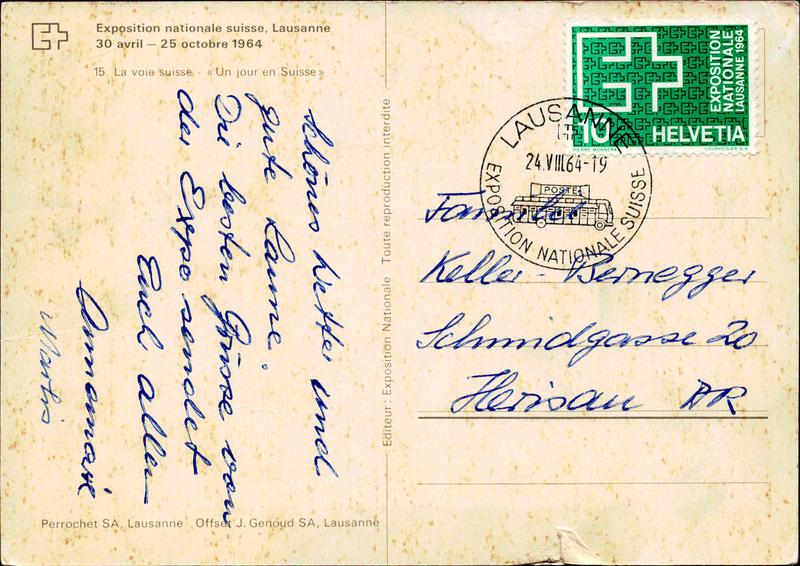 Exposition nationale suisse, Lausanne
30 avril – 25 octobre 1964
15. La voie suisse - «Un jour en Suisse»
schönes Wetter und
gute Laune.
Die besten Grüsse von
der Expo sendet
Euch allen
Annamarie
Martin
Perrochet SA, Lausanne Offset J. Genoud SA, Lausanne
Editeur: Exposition Nationale Toute reproduction interdite
EXPOSITION
NATIONALE
LAUSANNE 1964
10 HELVETIA
PIERRE MONNERAT COURVOISIER S.A.
LAUSANNE
24.VIII.64-19
POSTE
EXPOSITION NATIONALE SUISSE
Familie
Keller-Bernegger
Schmidgasse 20
Herisau AR